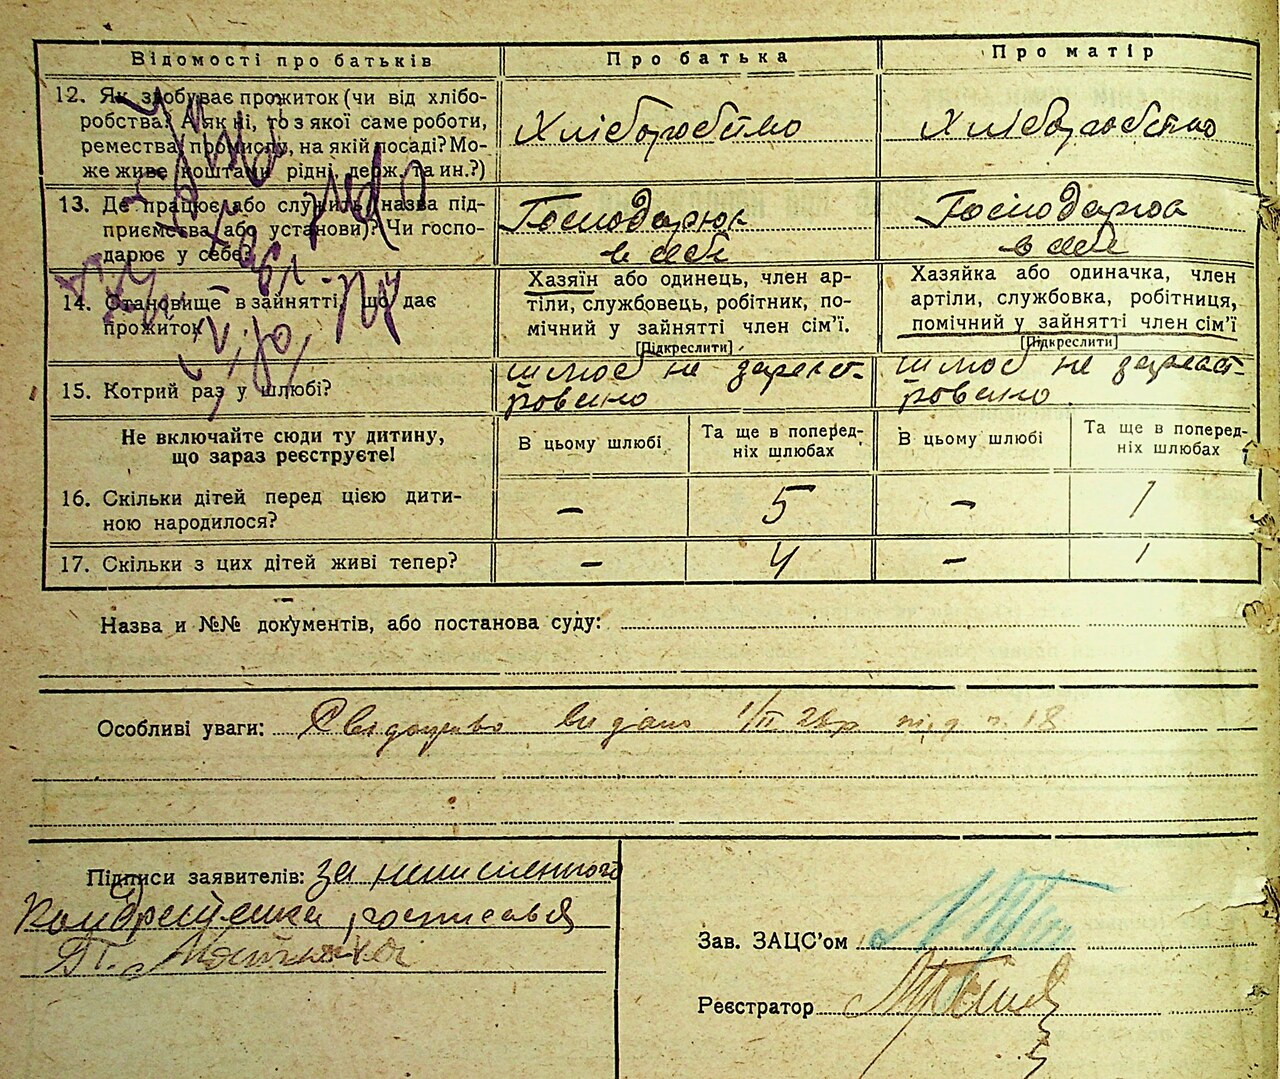 Відомості про батьків Про батька Про матір
12. Як здобуває прожиток (чи від хлібо-
робства? А як ні, то з якої саме роботи,
ремества, промислу, на якій посаді? Мо-
же живе коштами рідні, держ. та ин.?)
Хліборобство Хліборобство
13. Де працює або служить (назва під-
приємства або установи)? Чи госпо-
дарює у себе?
Господарює
в себе
Господарює
в себе
14. Становище в зайнятті, що дає
прожиток
Хазяїн або одинець, член ар-
тіли, службовець, робітник, по-
мічний у зайнятті член сім’ї.
[Підкреслити]
Хазяйка або одиначка, член
артіли, службовка, робітниця,
помічний у зайнятті член сім’ї
[Підкреслити]
15. Котрий раз у шлюбі?
шлюб не зареєст-
ровано
шлюб не зареєст-
ровано
Не включайте сюди ту дитину,
що зараз реєструєте!
В цьому шлюбі
Та ще в поперед-
ніх шлюбах
В цьому шлюбі
Та ще в поперед-
ніх шлюбах
16. Скільки дітей перед цією дити-
ною народилося?
– 5 – 1
17. Скільки з цих дітей живі тепер?
– 4 – 1
Назва и №№ документів, або постанова суду:
Особливі уваги: Свідоцтво видано 1/II 28р. під ч. 18
Підписи заявителів: за неписьменного
росписався
Зав. ЗАЦС’ом
Реєстратор